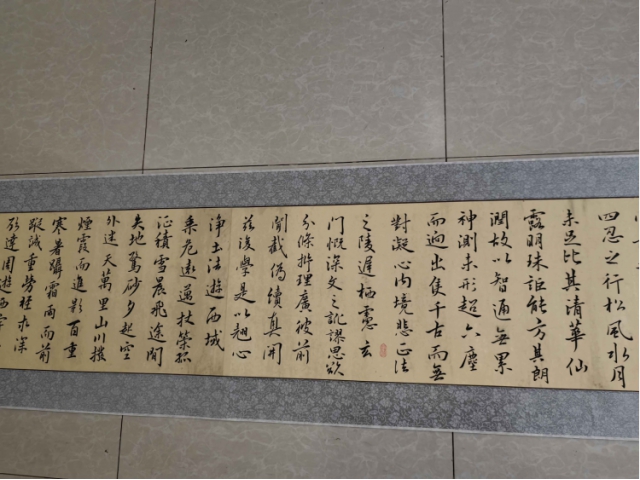 四忍之行松風水月
未足比其清華仙
露明珠詎能方其朗
潤故以智通無累
神測未形超六塵
而迥出隻千古而無
對凝心內境悲正法
之陵遲栖慮玄
門慨深文之訛謬思欲
分條析理廣彼前
聞截偽續真開
茲後學是以翹心
淨土法遊西域
乘危遠邁杖策孤
征積雪晨飛途閒
失地驚砂夕起空
外迷天萬里山川撥
煙霞而進影百重
寒暑躡霜雨而前
蹤誠重勞輕求深
達周遊西